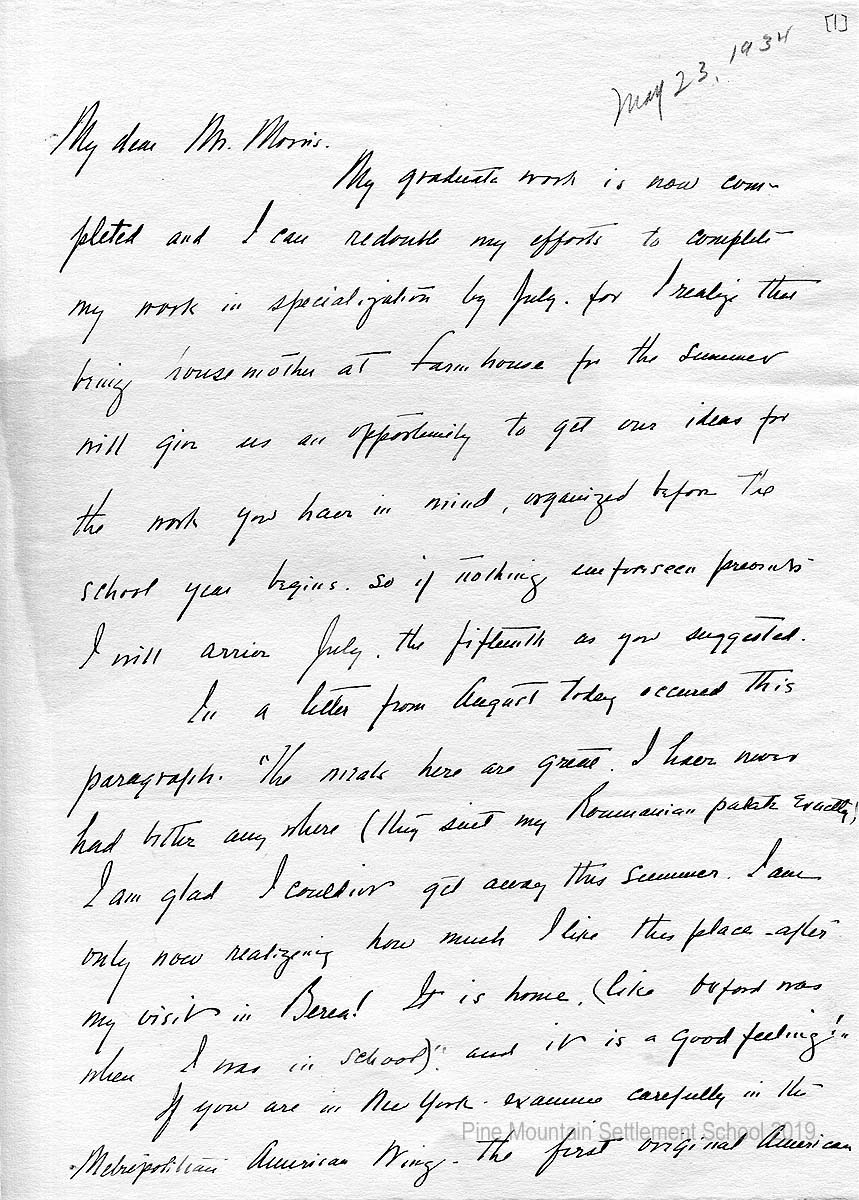 [1]
May 23, 1934
My dear Mr. Morris.
My graduate work is now com-
pleted and I can redouble my efforts to complete
my work in specialization by July. for I realize that
being housemother at Farm house for the summer
will give us an opportunity to get our ideas for
the work you have in mind, organized before the
school year begins. So if nothing unforseen prevents
I will arrive July. the fifteenth as you suggested.
In a letter from August today occured this
paragraph. "The meals here are great. I have never
had better any where (they suit my Roumanian palate exactly)
I am glad I couldnt get away this summer. I am
only now realizing how much I like this place - after
my visit in Berea! It is home, (like Oxford was
when I was in school)". and it is a good feeling!"
If you are in New York. examine carefully in the
Metropolitian American Wing - the first original American
Pine Mountain Settlement School 2019